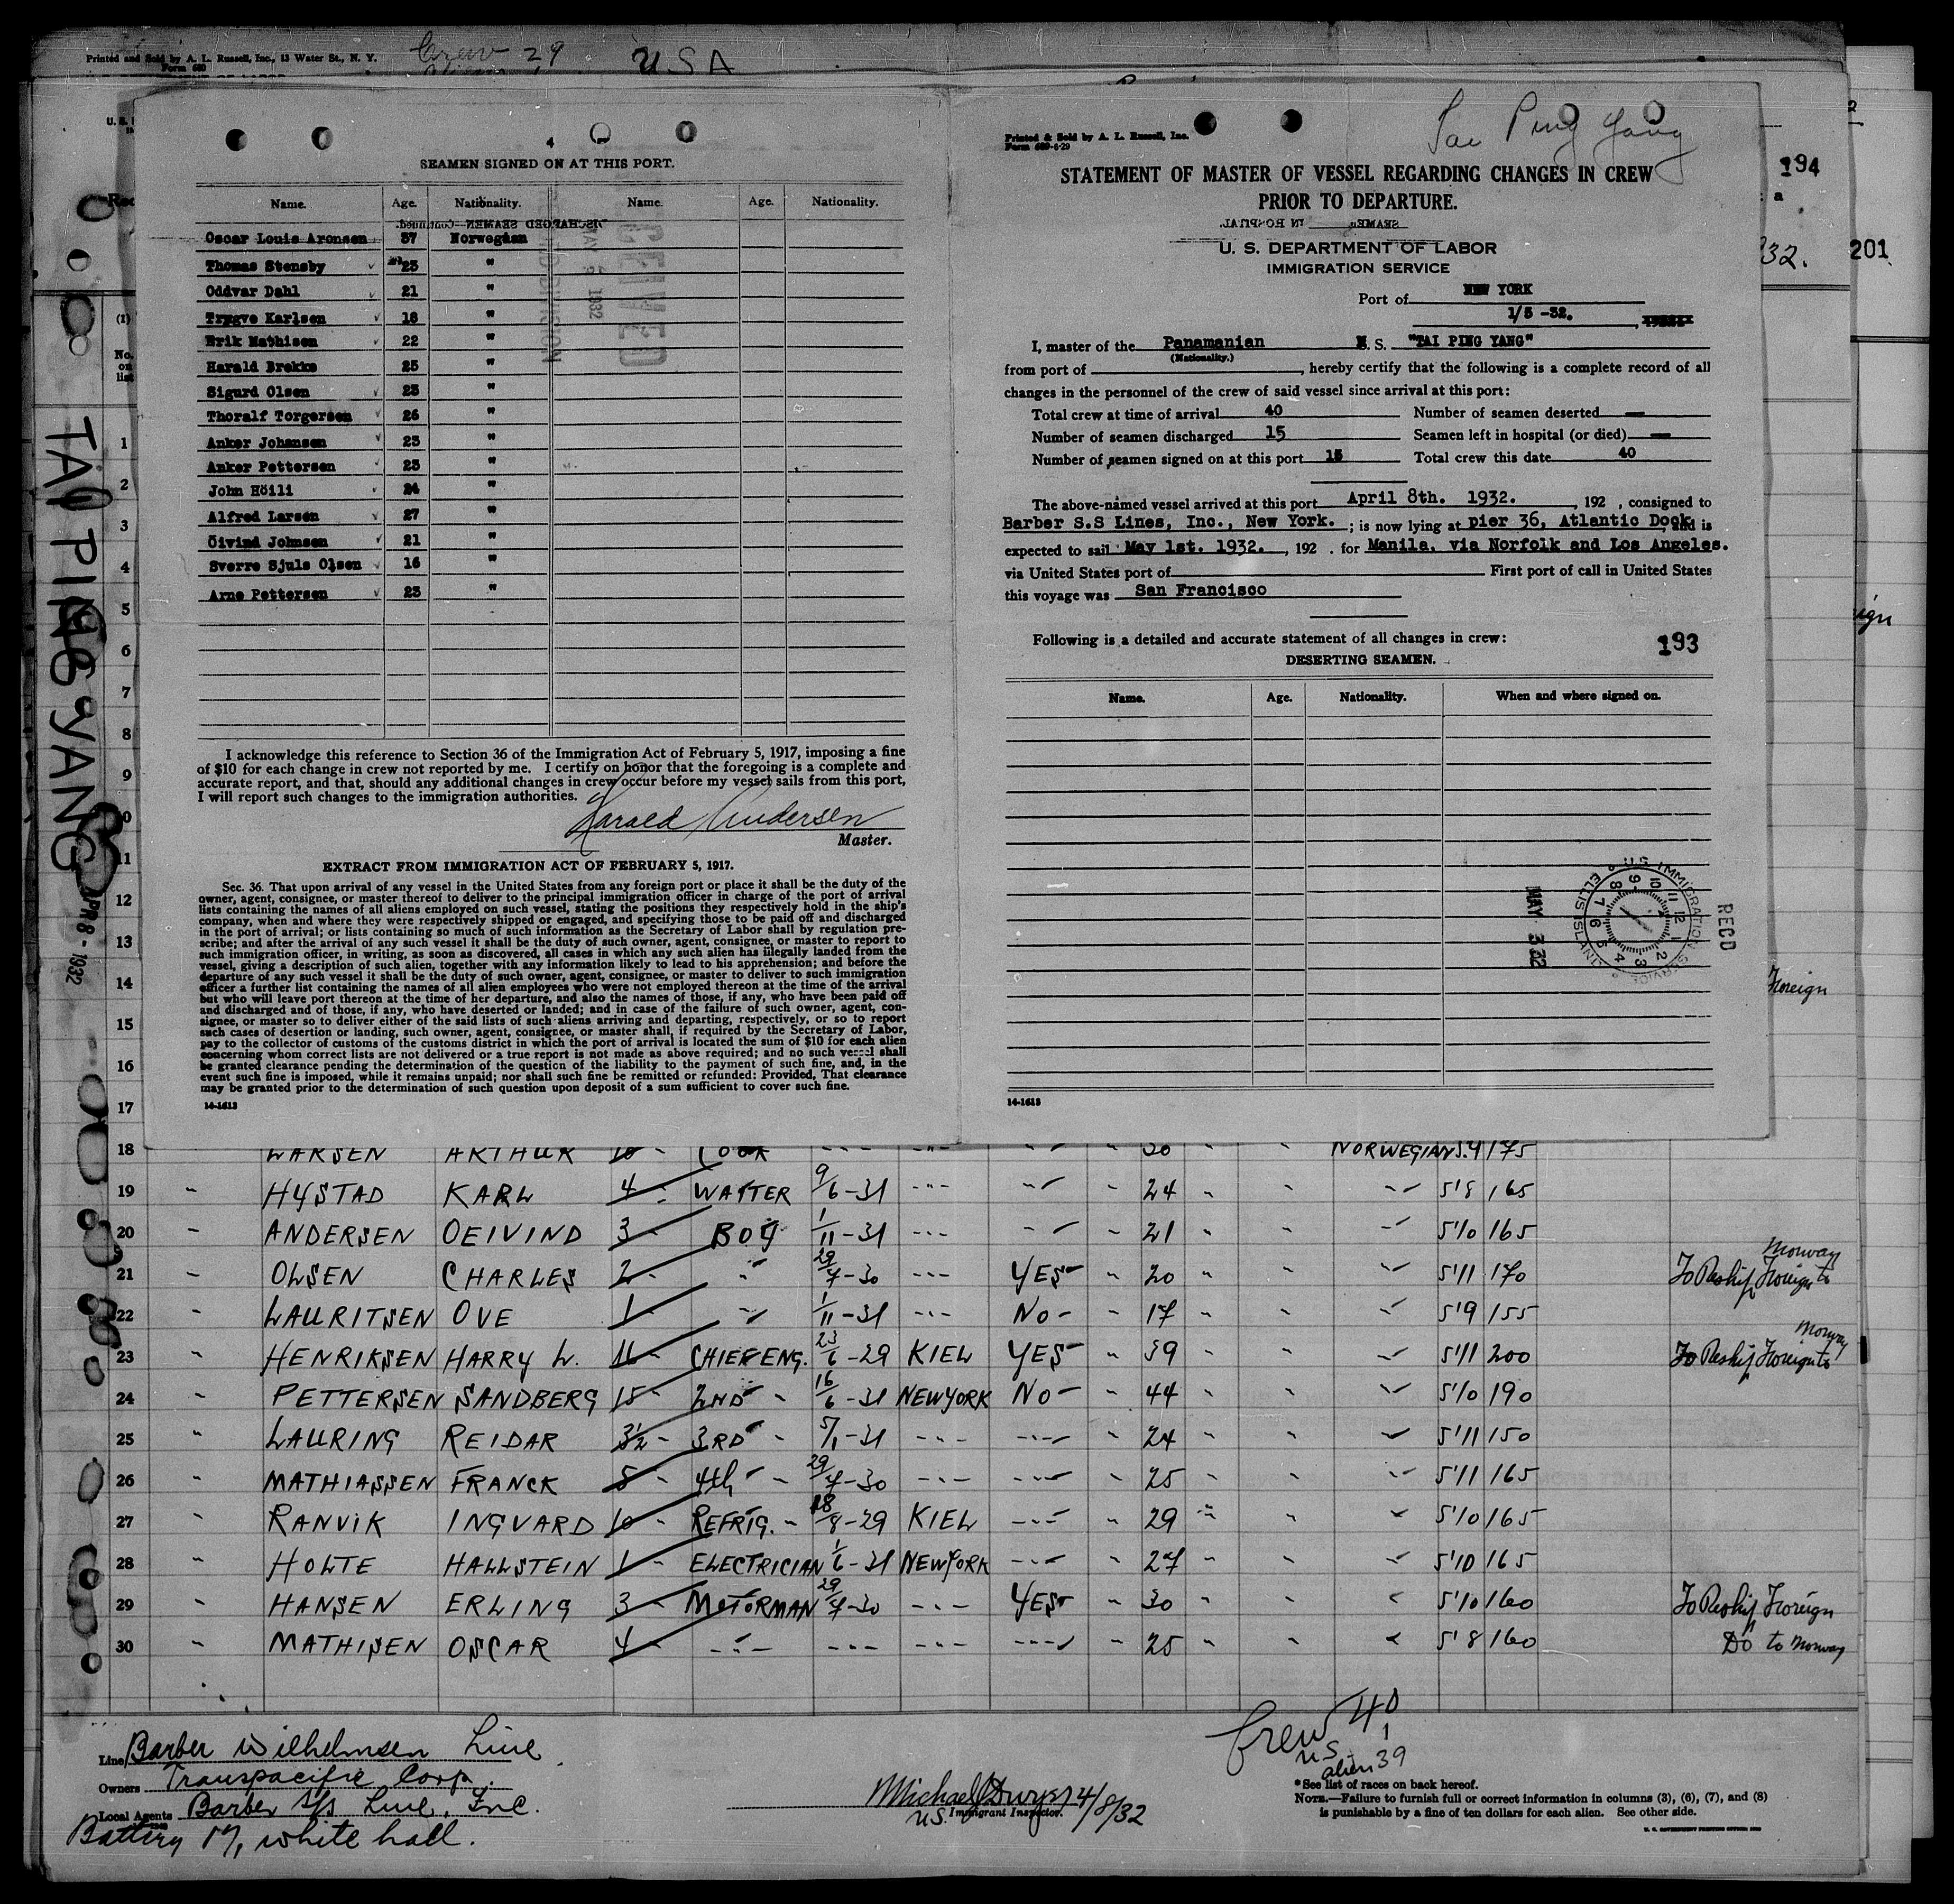 Printed and Sold by A. L. Russell, Inc., 13 Water St., N. Y.
Form 680
Crew 29 USA
4
SEAMEN SIGNED ON AT THIS PORT.
Name. Age. Nationality. Name. Age. Nationality.
DISCHARGED SEAMEN—Continued.
Oscar Louis Aronsen 37 Norwegian
Thomas Stensby 23 "
Oddvar Dahl 21 "
Trygve Karlsen 18 "
Erik Mathisen 22 "
Harald Brekke 25 "
Sigurd Olsen 23 "
Thoralf Torgersen 26 "
Anker Johansen 23 "
Anker Pettersen 23 "
John Höili 24 "
Alfred Larsen 27 "
Öivind Johnsen 21 "
Sverre Sjuls Olsen 16 "
Arne Pettersen 23 "
I acknowledge this reference to Section 36 of the Immigration Act of February 5, 1917, imposing a fine
of $10 for each change in crew not reported by me. I certify on honor that the foregoing is a complete and
accurate report, and that, should any additional changes in crew occur before my vessel sails from this port,
I will report such changes to the immigration authorities.
Harald Andersen
Master.
EXTRACT FROM IMMIGRATION ACT OF FEBRUARY 5, 1917.
Sec. 36. That upon arrival of any vessel in the United States from any foreign port or place it shall be the duty of the
owner, agent, consignee, or master thereof to deliver to the principal immigration officer in charge of the port of arrival
lists containing the names of all aliens employed on such vessel, stating the positions they respectively hold in the ship's
company, when and where they were respectively shipped or engaged, and specifying those to be paid off and discharged
in the port of arrival; or lists containing so much of such information as the Secretary of Labor shall by regulation pre-
scribe; and after the arrival of any such vessel it shall be the duty of such owner, agent, consignee, or master to report to
such immigration officer, in writing, as soon as discovered, all cases in which any such alien has illegally landed from the
vessel, giving a description of such alien, together with any information likely to lead to his apprehension; and before the
departure of any such vessel it shall be the duty of such owner, agent, consignee, or master to deliver to such immigration
officer a further list containing the names of all alien employees who were not employed thereon at the time of the arrival
but who will leave port thereon at the time of her departure, and also the names of those, if any, who have been paid off
and discharged and of those, if any, who have deserted or landed; and in case of the failure of such owner, agent, con-
signee, or master so to deliver either of the said lists of such aliens arriving and departing, respectively, or so to report
such cases of desertion or landing, such owner, agent, consignee, or master shall, if required by the Secretary of Labor,
pay to the collector of customs of the customs district in which the port of arrival is located the sum of $10 for each alien
concerning whom correct lists are not delivered or a true report is not made as above required; and no such vessel shall
be granted clearance pending the determination of the question of the liability to the payment of such fine, and, in the
event such fine is imposed, while it remains unpaid; nor shall such fine be remitted or refunded: Provided, That clearance
may be granted prior to the determination of such question upon deposit of a sum sufficient to cover such fine.
14-1613
Tai Ping Yang
Printed & Sold by A. L. Russell, Inc.
Form 689-6-29
STATEMENT OF MASTER OF VESSEL REGARDING CHANGES IN CREW
PRIOR TO DEPARTURE.
SEAMEN IN HOSPITAL.
U. S. DEPARTMENT OF LABOR
IMMIGRATION SERVICE
Port of NEW YORK
1/5 -32.
I, master of the Panamanian M. S. "TAI PING YANG"
(Nationality.)
from port of , hereby certify that the following is a complete record of all
changes in the personnel of the crew of said vessel since arrival at this port:
Total crew at time of arrival 40 Number of seamen deserted —
Number of seamen discharged 15 Seamen left in hospital (or died) —
Number of seamen signed on at this port 15 Total crew this date 40
The above-named vessel arrived at this port April 8th. 1932. , 192 , consigned to
Barber S.S Lines, Inc., New York. ; is now lying at pier 36, Atlantic Dock, and is
expected to sail May 1st. 1932. , 192 . for Manila, via Norfolk and Los Angeles.
via United States port of First port of call in United States
this voyage was San Francisco
Following is a detailed and accurate statement of all changes in crew:
193
DESERTING SEAMEN.
Name. Age. Nationality. When and where signed on.
RECD
U S IMMIGRATION SERVICE ELLIS ISLAND
MAY 3 32
14-1613
194
201
32.
Foreign
TAI PING YANG
APR 8 - 1932
(1)
No. on list
1
2
3
4
5
6
7
8
9
10
11
12
13
14
15
16
17
18 LARSEN ARTHUR 10 - COOK 30 " " NORWEGIAN 5.9 175
19 " HYSTAD KARL 4 WAITER 9/6-31 24 " " 5'8 165
20 " ANDERSEN OEIVIND 3 BOY 1/11-31 21 " " 5'10 165
21 " OLSEN CHARLES 2 " 29/7-30 YES 20 " " 5'11 170 To Reship Foreign to Norway
22 " LAURITSEN OVE 1 " 1/11-31 NO 17 " " 5'9 155
23 " HENRIKSEN HARRY L. 16 CHIEF ENG. 23/6-29 KIEL YES 39 " " 5'11 200 To Reship Foreign to Norway
24 " PETTERSEN SANDBERG 15 2ND " 16/6-31 NEWYORK NO 44 " " 5'10 190
25 " LAURING REIDAR 3½ 3RD " 5/1-31 24 " " 5'11 150
26 " MATHIASSEN FRANCK 8 4th " 29/7-30 25 " " 5'11 165
27 " RANVIK INGVARD 10 REFRIG. " 18/8-29 KIEL 29 " " 5'10 165
28 " HOLTE HALLSTEIN 1 ELECTRICIAN 1/6-31 NEWYORK 27 " " 5'10 165
29 " HANSEN ERLING 3 MOTORMAN 29/7-30 YES 30 " " 5'10 160 To Reship Foreign
30 " MATHISEN OSCAR 4 25 " " 5'8 160 Do to Norway
Line Barber Wilhelmsen Line
Owners Transpacific Corp.
Local Agents Barber S/S Line, Inc.
Battery Pl, white hall.
Michael J Dwyer 4/8/32
U.S. Immigrant Inspector.
Crew 40
US 1
alien 39
*See list of races on back hereof.
NOTE.—Failure to furnish full or correct information in columns (3), (6), (7), and (8)
is punishable by a fine of ten dollars for each alien. See other side.